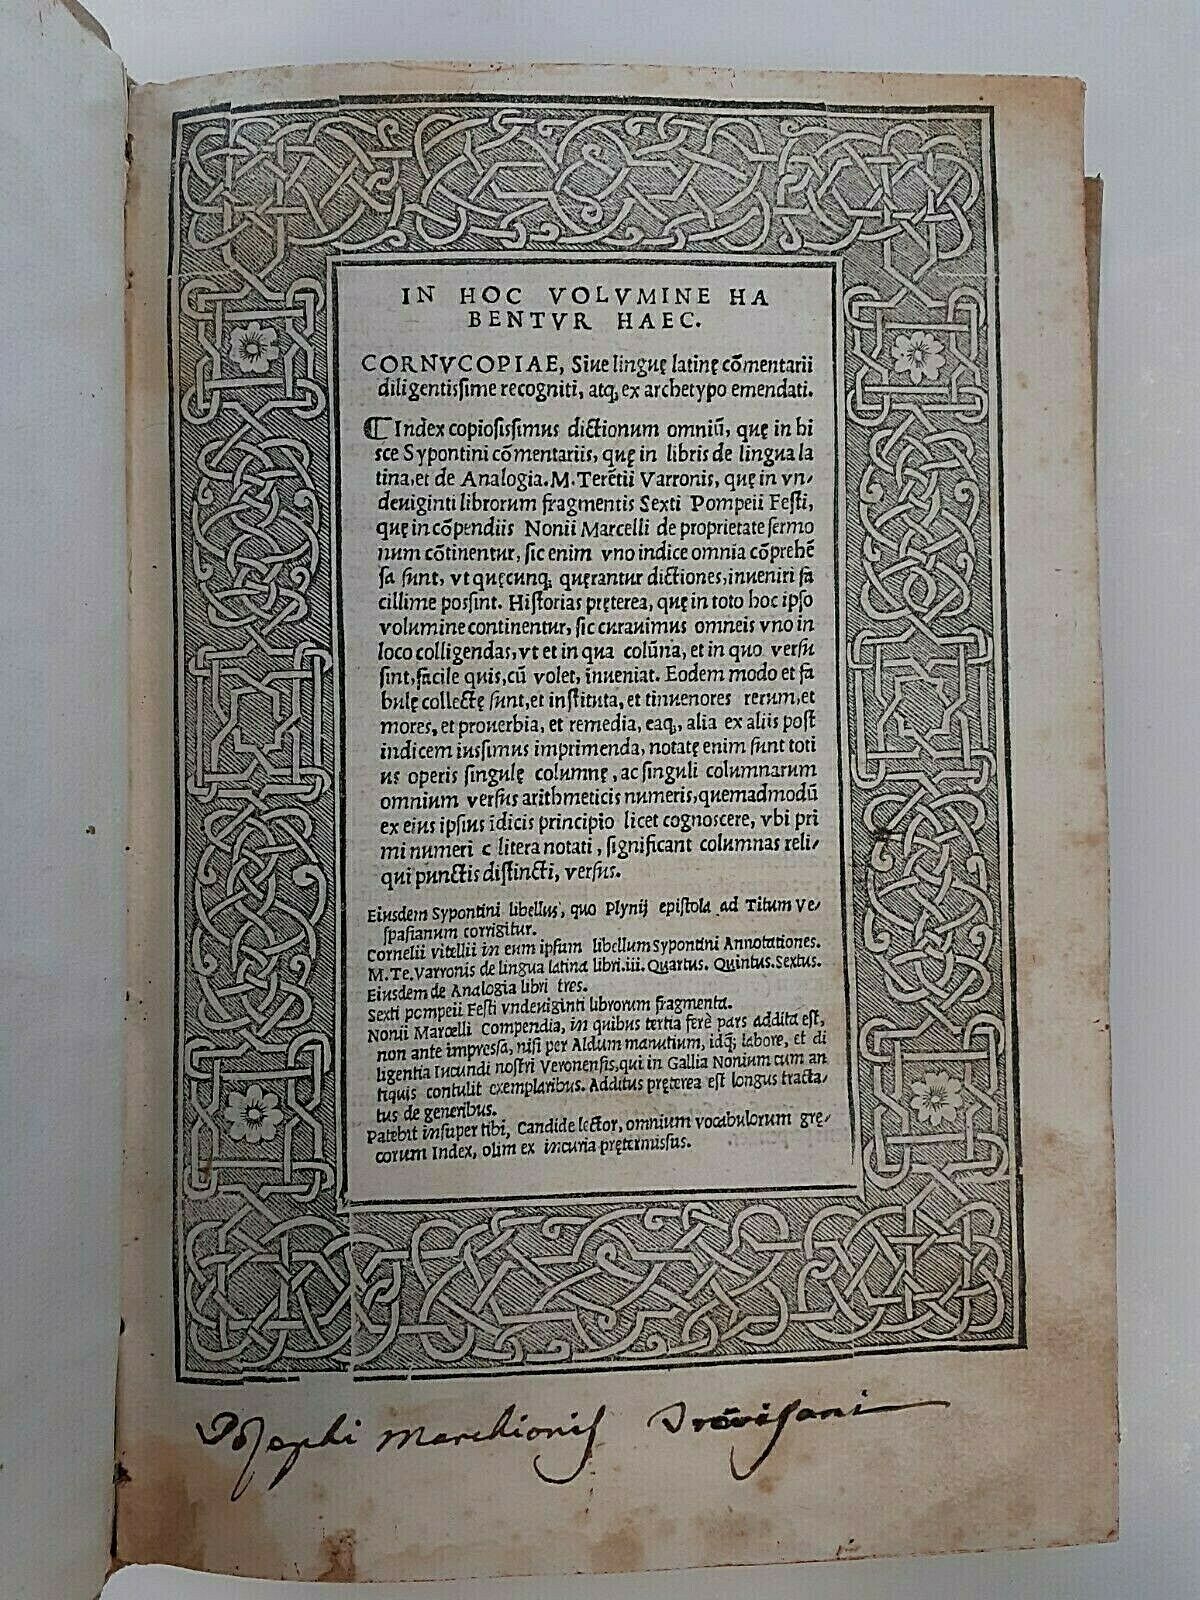 IN HOC VOLVMINE HA
BENTVR HAEC.
CORNVCOPIAE, Siue linguę latinę cōmentarii
diligentissime recogniti, atq; ex archetypo emendati.
Index copiosissimus dictionum omniū, quę in hi
sce Sypontini cōmentariis, quę in libris de lingua la
tina, et de Analogia. M. Terētii Varronis, quę in vn-
deuiginti librorum fragmentis Sexti Pompeii Festi,
quę in cōpendiis Nonii Marcelli de proprietate sermo
num cōtinentur, sic enim vno indice omnia cōprehē
sa sunt, vt quęcunq; quęrantur dictiones, inueniri fa
cillime possint. Historias pręterea, quę in toto hoc ipso
volumine continentur, sic curauimus omneis vno in
loco colligendas, vt et in qua colūna, et in quo versu
sint, facile quis, cū volet, inueniat. Eodem modo et fa
bulę collectę sunt, et instituta, et tinuenores rerum, et
mores, et prouerbia, et remedia, eaq; alia ex aliis post
indicem iussimus imprimenda, notatę enim sunt toti
us operis singulę columnę, ac singuli columnarum
omnium versus arithmeticis numeris, quemadmodū
ex eius ipsius īdicis principio licet cognoscere, vbi pri
mi numeri c litera notati, significant columnas reli-
qui punctis distincti, versus.
Eiusdem Sypontini libellus, quo Plynij epistola ad Titum Ve-
spasianum corrigitur.
Cornelii vitellii in eum ipsum libellum Sypontini Annotationes.
M. Te. Varronis de lingua latina libri. iii. Quartus. Quintus. Sextus.
Eiusdem de Analogia libri tres.
Sexti pompeii Festi vndeuiginti librorum fragmenta.
Nonii Marcelli Compendia, in quibus tertia ferè pars addita est,
non ante impressa, nisi per Aldum manutium, idq; labore, et di
ligentia Iucundi nostri Veronensis, qui in Gallia Nonium cum an
tiquis contulit exemplaribus. Additus pręterea est longus tracta-
tus de generibus.
Patebit insuper tibi, Candide lector, omnium vocabulorum grę-
corum Index, olim ex incuria prętermissus.
Josephi Marchionis Trevisani